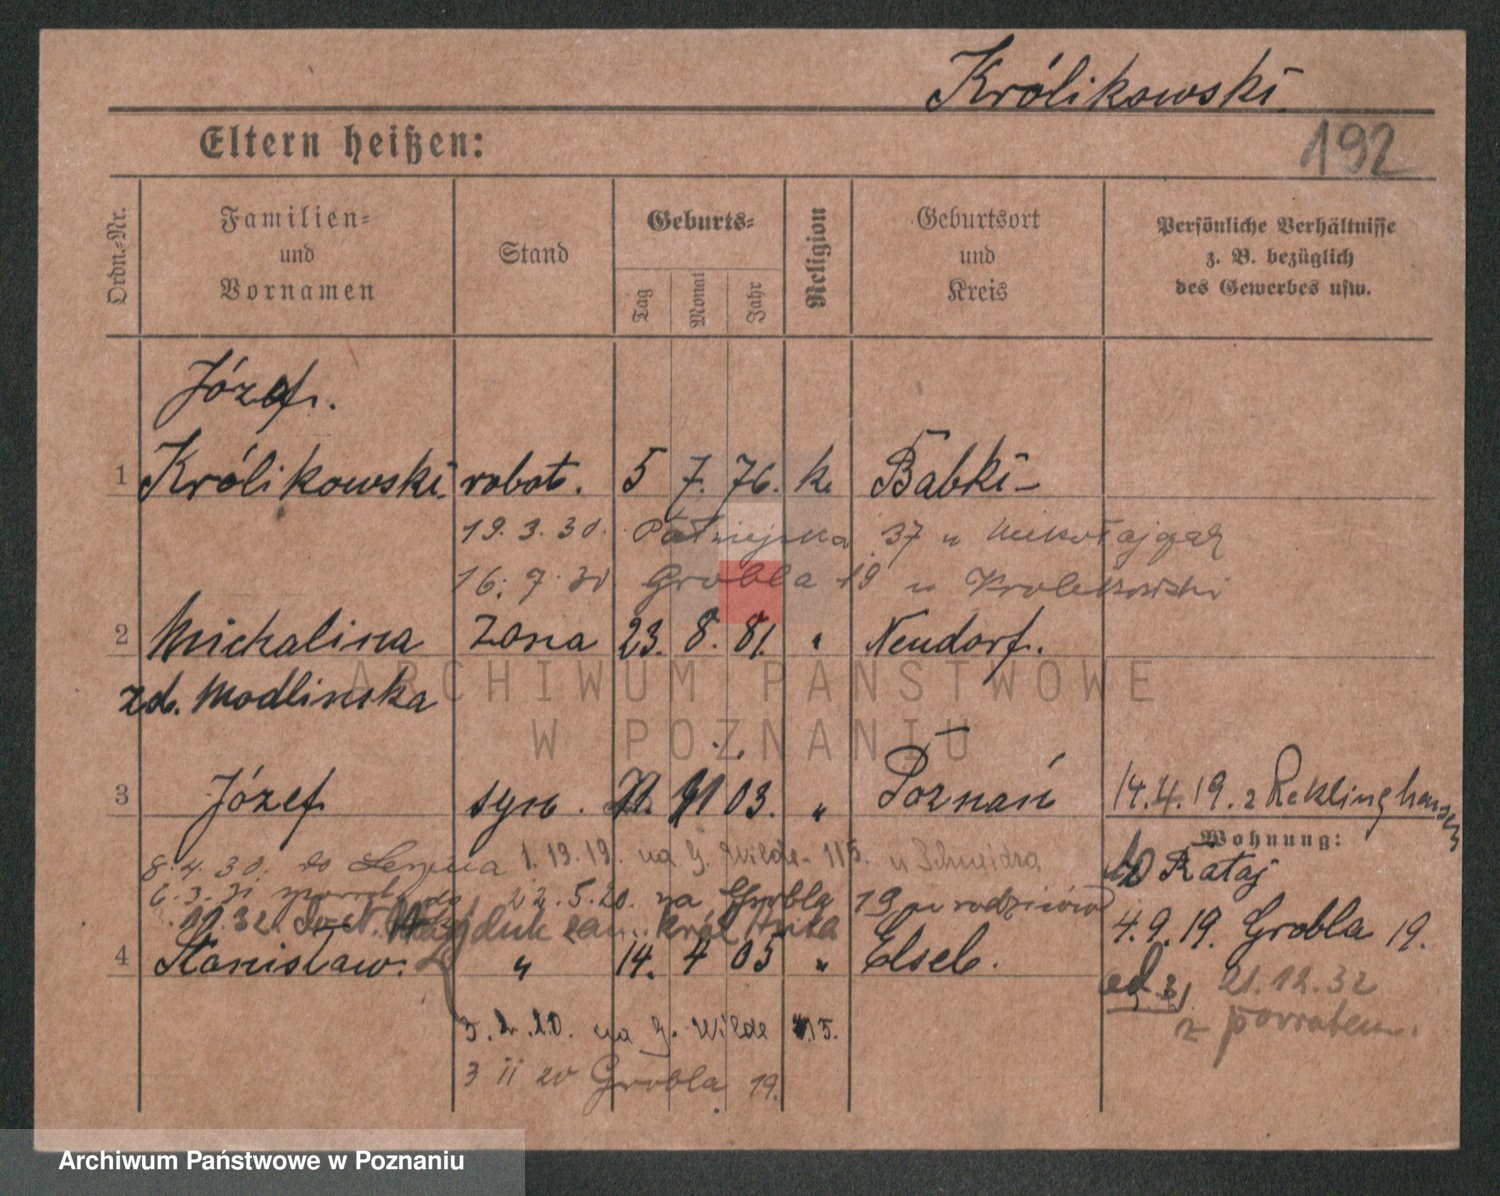 Królikowski
192
Eltern heißen:
Ordn.-Nr.
Familien-
und
Vornamen
Stand
Geburts-
Tag
Monat
Jahr
Religion
Geburtsort
und
Kreis
Persönliche Verhältnisse
z. B. bezüglich
des Gewerbes usw.
Józef.
1 Królikowski robot. 5 7. 76. k. Babki
19. 3. 30. 37 u
16. 30 Grobla 19 u
2 Michalina żona 23. 8. 81. " Neudorf.
zd. Modlinska
ARCHIWUM PAŃSTWOWE
W POZNANIU
3 Józef syn. 03. " Poznań 14.4.19. z Reklinghausen
Wohnung:
8.4.30. do 1. 19. na G. Wilde 115. u
6.3.31 22.5.20. na Grobla 19 u rodziców
Rataj
4.9.19. Grobla 19.
4 Stanisław. " 14. 4 05 " Elseb.
21.12.32
z powrotem.
3. 2. 20. na G. Wilde 115.
3 II 20 Grobla 19.
Archiwum Państwowe w Poznaniu